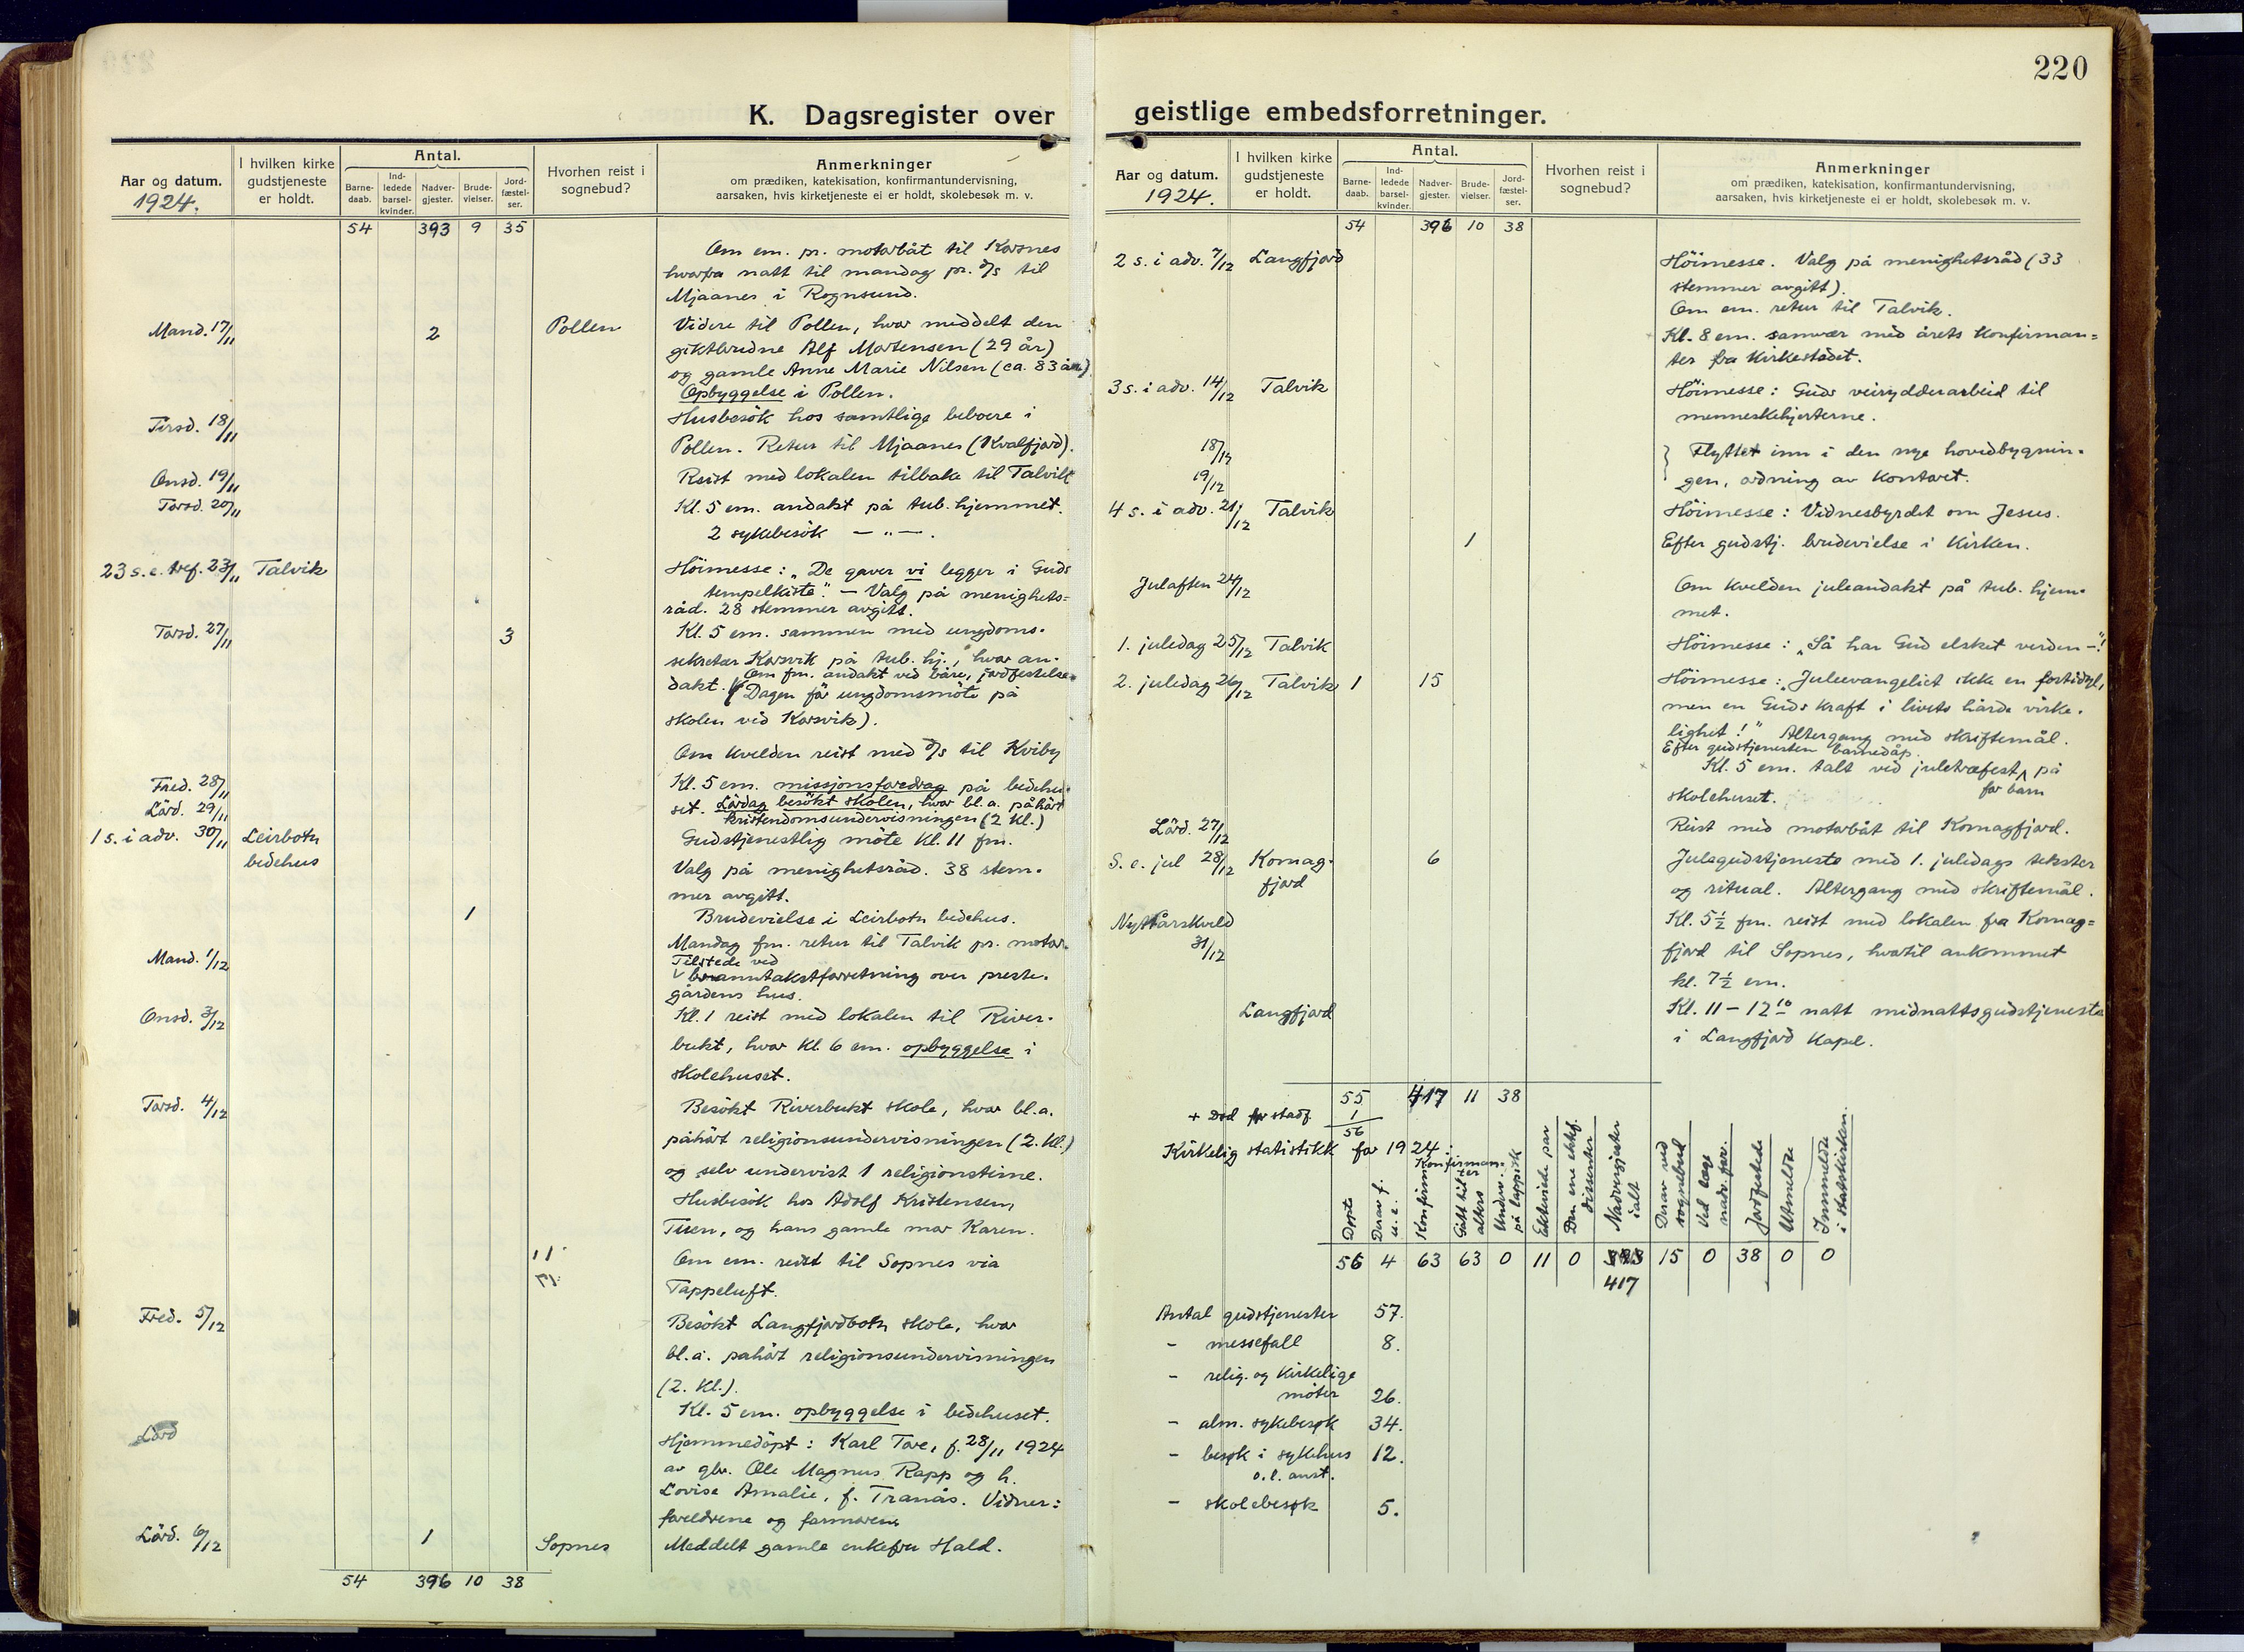 220
K. Dagsregister over geistlige embedsforretninger.
Aar og datum.
1924.
I hvilken kirke
gudstjeneste
er holdt.
Antal.
Barne-
daab.
Ind-
ledede
barsel-
kvinder.
Nadver-
gjester.
Brude-
vielser.
Jord-
fæstel-
ser.
Hvorhen reist i
sognebud?
Anmerkninger
om prædiken, katekisation, konfirmantundervisning,
aarsaken, hvis kirketjeneste ei er holdt, skolebesøk m. v.
54 393 9 35
Om em. pr. motorbåt til Korsnes
hvorfra natt til mandag pr. d/s til
Mjaanes i Rognsund.
Mand. 17/11 2 Pollen Videre til Pollen, hvor meddelt den
giktbrudne Alf Mortensen (29 år)
og gamle Anne Marie Nilsen (ca. 83 år)
Opbyggelse i Pollen.
Tirsd. 18/11 Husbesök hos samtlige beboere i
Pollen. Retur til Mjaanes (Kvalfjord).
Onsd. 19/11 Reist med lokalen tilbake til Talvik
Torsd. 20/11 Kl. 5 em. andakt på tub. hjemmet.
2 sykebesök — „ — .
23 s. e. tref. 23/11 Talvik Höimesse: „De gaver vi legger i Guds
tempelkiste". — Valg på menighets=
råd. 28 stemmer avgitt.
Torsd. 27/11 3 Kl. 5 em. sammen med ungdoms-
sekretær Korsvik på tub. hj., hvor an-
Om fm. andakt ved båre, jordfestelse.
dakt. (Dagen för ungdomsmöte på
skolen ved Korsvik).
Om kvelden reist med d/s til Kviby
Fred. 28/11 Kl. 5 em. missjonsforedrag på bedehu-
Lörd. 29/11 set. Lördag besökt skolen, hvor bl. a. påhört
kristendomsundervisningen (2 kl.)
1 s. i adv. 30/11 Leirbotn
bedehus
Gudstjenestlig möte kl. 11 fm.
Valg på menighetsråd. 38 stem-
mer avgitt.
1 Brudevielse i Leirbotn bedehus.
Mand. 1/12 Mandag fm. retur til Talvik pr. motor.
Tilstede ved
branntakstforretning over preste-
gårdens hus.
Onsd. 3/12 Kl. 1 reist med lokalen til River-
bukt, hvor kl. 6 em. opbyggelse i
skolehuset.
Torsd. 4/12 Besökt Riverbukt skole, hvor bl. a.
påhört religionsundervisningen (2. kl.)
og selv undervist 1 religionstime.
Husbesök hos Adolf Kristensen,
Tuen, og hans gamle mor Karen.
Om em. reist til Sopnes via
Tappeluft.
Fred. 5/12 Besökt Langfjordbotn skole, hvor
bl. a. påhört religionsundervisningen
(2. kl.).
Kl. 5 em. opbyggelse i bedehuset.
Lörd
Hjemmedöpt: Karl Tore, f. 28/11 1924
av gbr. Ole Magnus Rapp og h.
Lovise Amalie, f. Tranås. Vidner:
foreldrene og farmoren.
Lörd. 6/12 1 Sopnes Meddelt gamle enkefru Hald.
54 396 10 38
Aar og datum.
1924.
I hvilken kirke
gudstjeneste
er holdt.
Antal.
Barne-
daab.
Ind-
ledede
barsel-
kvinder.
Nadver-
gjester.
Brude-
vielser.
Jord-
fæstel-
ser.
Hvorhen reist i
sognebud?
Anmerkninger
om prædiken, katekisation, konfirmantundervisning,
aarsaken, hvis kirketjeneste ei er holdt, skolebesøk m. v.
54 396 10 38
2 s. i adv. 7/12 Langfjord Höimesse. Valg på menighetsråd (33
stemmer avgitt).
Om em. retur til Talvik.
Kl. 8 em. samvær med årets konfirman=
ter fra kirkestedet.
3 s. i adv. 14/12 Talvik Höimesse: Guds veirydderarbeid til
menneskehjerterne.
18/12
19/12
Flyttet inn i den nye hovedbygnin-
gen, ordning av kontoret.
4 s. i adv. 21/12 Talvik Höimesse: Vidnesbyrdet om Jesus.
1 Efter gudstj. brudevielse i kirken.
Julaften 24/12 Om kvelden juleandakt på tub. hjem-
met.
1. juledag 25/12 Talvik Höimesse: „Så har Gud elsket verden —"!
2. juledag 26/12 Talvik 1 15 Höimesse: „Juleevangeliet ikke en fortidsyl,
men en Guds kraft i livets hårde virke-
lighet!" Altergang med skriftemål.
Efter gudstjenesten barnedåp.
Kl. 5 em. talt ved juletræfest på
for barn
skolehuset.
Lörd. 27/12 Reist med motorbåt til Komagfjord.
S. e. jul 28/12 Komag-
fjord
6 Julegudstjeneste med 1. juledags tekster
og ritual. Altergang med skriftemål.
Nyttårskveld
31/12
Kl. 5½ fm. reist med lokalen fra Komag=
fjord til Sopnes, hvortil ankommet
kl. 7½ em.
Langfjord Kl. 11 — 12 10 natt midnattsgudstjeneste
i Langfjord kapel.
55 417 11 38
+ Död før stadf. 1
56
Kirkelig statistikk for 1924:
Konfirman-
ter
Døpte
Derav f.
u. e.
Konfirm
Gått til
alters
Underv.
på lappisk
Ektevidde par
Den ene ekkf.
dissenter
Nadvergjester
ialt
Derav ved
sognebud
Ved læge
nadv. for.
Jordfestede
Utmeldte
Innmeldte
i statskirken.
56 4 63 63 0 11 0 15 0 38 0 0
417
Antal gudstjenester 57.
- messefall 8.
- relig. og kirkelige
møter 26.
- alm. sykebesøk 34.
- besøk i sykehus 12.
o. l. anst.
- skolebesøk 5.